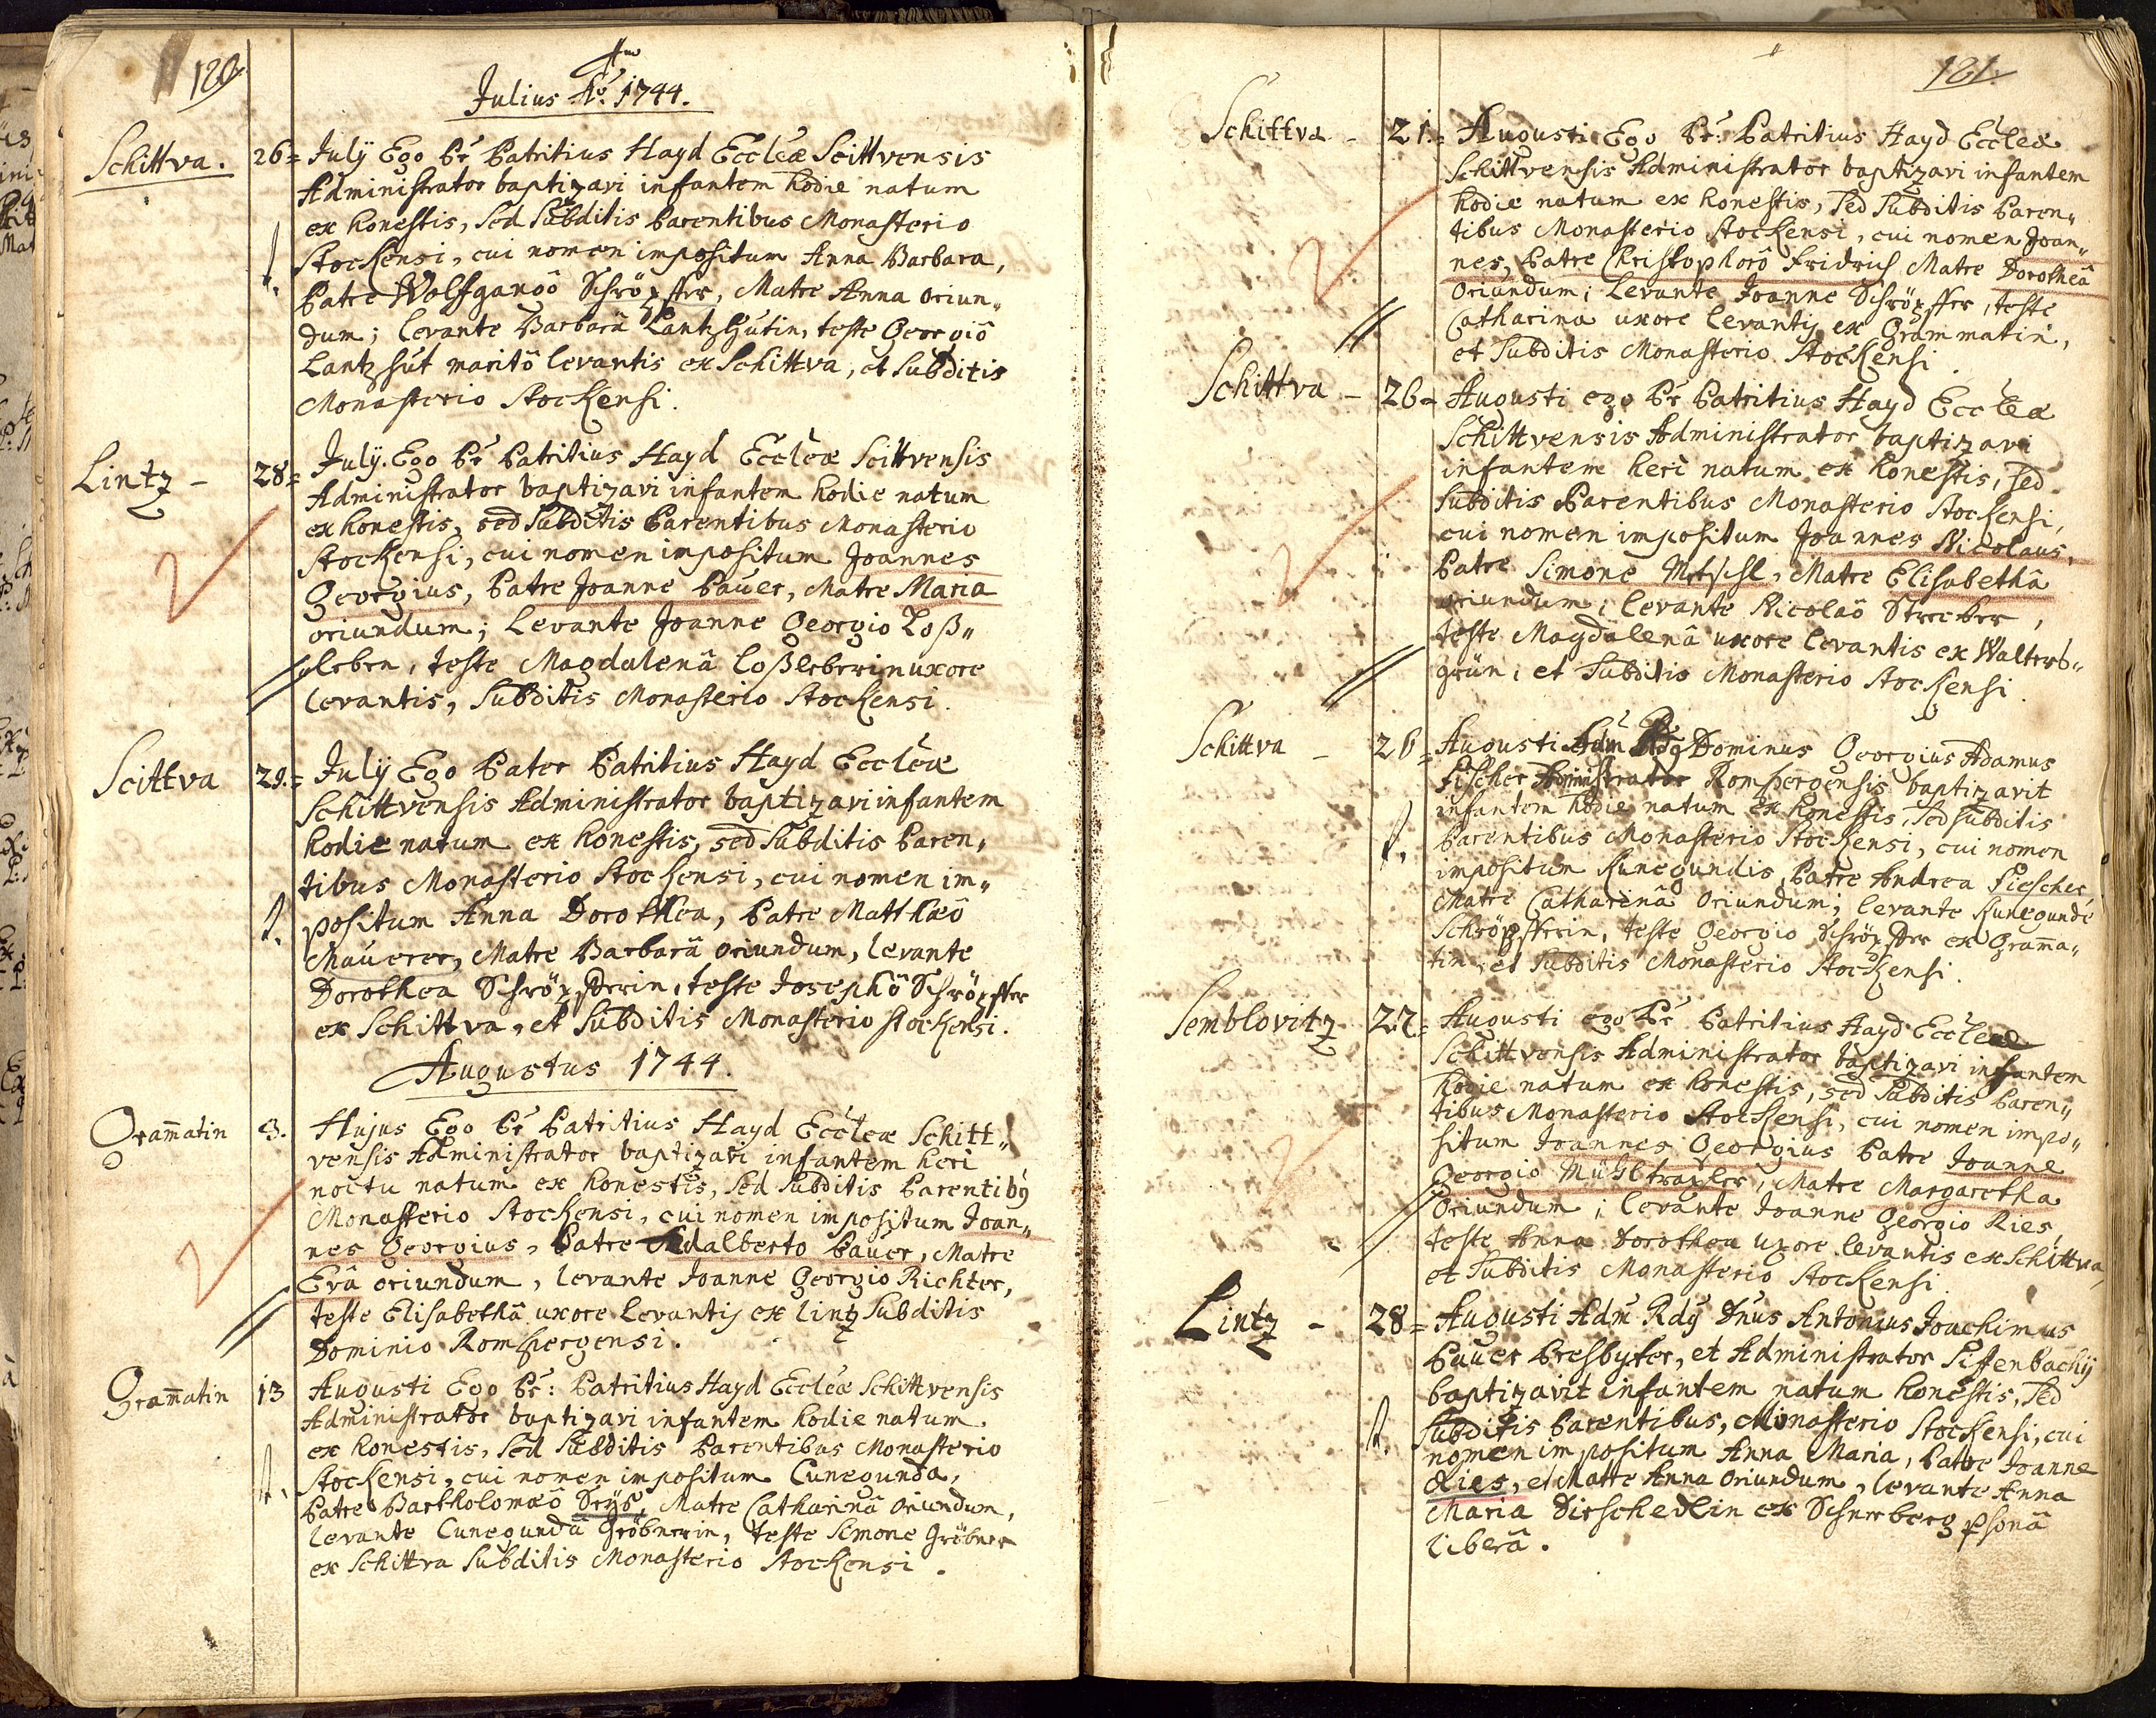 180.
Julius Aõ. 1744.
Schittva.
26= July Ego Pr̃ Patritius Hayd Eccleæ Scittvensis
Administrator baptizavi infantem hodie natum
ex honestis, sed Subditis Parentibus Monasterio
Stockensi, cui nomen impositum Anna Barbara,
Patre Wolfgangô Schröpffer, Matre Anna oriun„
dum; levante Barbarâ Lantzhutin, teste Georgiô
Lantzhut maritô levantis ex Schittva, et Subditis
Monasterio Stockensi.
Lintz –
28= July. Ego Pr̃ Patritius Hayd Eccleæ Scittvensis
Administrator baptizavi infantem hodie natum
ex honestis, sed Subditis Parentibus Monasterio
Stockensi, cui nomen impositum Joannes
Georgius, Patre Joanne Pauer, Matre Maria
oriundum; Levante Joanne Georgio Loß„
leben, teste Magdalenâ Loßleberin uxore
levantis, Subditis Monasterio Stockensi.
Scittva
29.= July Ego Pater Patritius Hayd Eccleæ
Schittvensis Administrator baptizavi infantem
hodie natum ex honestis, sed Subditis Paren„
tibus Monasterio Stockensi, cui nomen im„
positum Anna Dorothea, Patre Matthæô
Mauerer, Matre Barbarâ oriundum, levante
Dorothea Schröpfferin, teste Josephô Schröpffer
ex Schittva, et Subditis Monasterio Stockensi.
Augustus 1744.
Gram̃atin
3. Hujus Ego Pr̃ Patritius Hayd Eccleæ Schitt„
vensis Administrator baptizavi infantem heri
noctu natum ex honestis, sed Subditis Parentibq
Monasterio Stockensi, cui nomen impositum Joan„
nes Georgius, Patre Adalberto Pauer, Matre
Evâ oriundum, levante Joanne Georgio Richter,
teste Elisabethâ uxore levantis ex lintz Subditis
Dominio Romspergensi.
Gram̃atin
13 Augusti Ego Pr̃: Patritius Hayd Eccleæ Schittvensis
Administrator baptizavi infantem hodie natum
ex honestis, sed Subditis Parentibus Monasterio
Stockensi, cui nomen impositum Cunegunda,
Patre Bartholomæô Matre Catharinâ oriundum,
levante Cunegundâ Gröbnerin, teste Simone Gröbner
ex Schittva Subditis Monasterio Stockensi.
181.
Schittva –
21.= Augusti Ego Pr̃: Patritius Hayd Eccleæ
Schittvensis Administrator baptizavi infantem
hodie natum ex honestis, sed Subditis Paren„
tibus Monasterio Stockensi, cui nomen Joan„
nes, Patre Christophorô Fridrich Matre Dorotheâ
Oriundum; levante Joanne Schröpffer, teste
Catharina uxore levantis ex Grammatin,
et Subditis Monasterio Stockensi.
Schittva –
26= Augusti ego Pr̃ Patritius Hayd Eccleæ
Schittvensis Administrator baptizavi
infantem heri natum ex honestis, sed
Subditis Parentibus Monasterio Stockensi,
cui nomen impositum Joannes Nicolaus,
Patre Simone Matre Elisabethâ
oriundum; levante Nicolaô Streeber,
teste Magdalenâ uxore levantis ex Walters„
grün, et Subditis Monasterio Stockensi.
Schittva –
26= Augusti Adm̃ Rdq Dominus Georgius Adamus
Fischer Administrator Romspergensis baptizavit
infantem hodie natum ex honestis, sed Subditis
Parentibus Monasterio Stockensi, cui nomen
impositum Kunegundis, Patre Andrea Fiescher,
Matre Catharinâ Oriundum; levante Kunegunde
Schröpfferin, teste Georgio Schröpffer ex Gram̃a„
tin, et Subditis Monasterio Stockensi.
Semblovitz
27= Augusti ego Pr̃ Patritius Hayd Eccleæ
Schittvensis Administrator baptizavi infantem
hodie natum ex honestis, sed Subditis Paren„
tibus Monasterio Stockensi, cui nomen impo„
situm Joannes Georgius Patre Joanne
Georgio Mühltraxler, Matre Margaretha
Oriundum; levante Joanne Georgio Ries,
teste Anna Dorothea uxore levantis ex Schittva,
et Subditis Monasterio Stockensi
Lintz –
28= Augusti Adm̃ Rdq Dñus Antonius Joachimus
Pauer Presbyter, et Administrator Siffenbachij
baptizavit infantem natum honestis, sed
Subditis Parentibus, Monasterio Stockensi, cui
nomen impositum Anna Maria, Patre Joanne
Ries, et Matre Anna Oriundum, levante Anna
Maria Dirschedlin ex Schneeberg psonâ
liberâ.